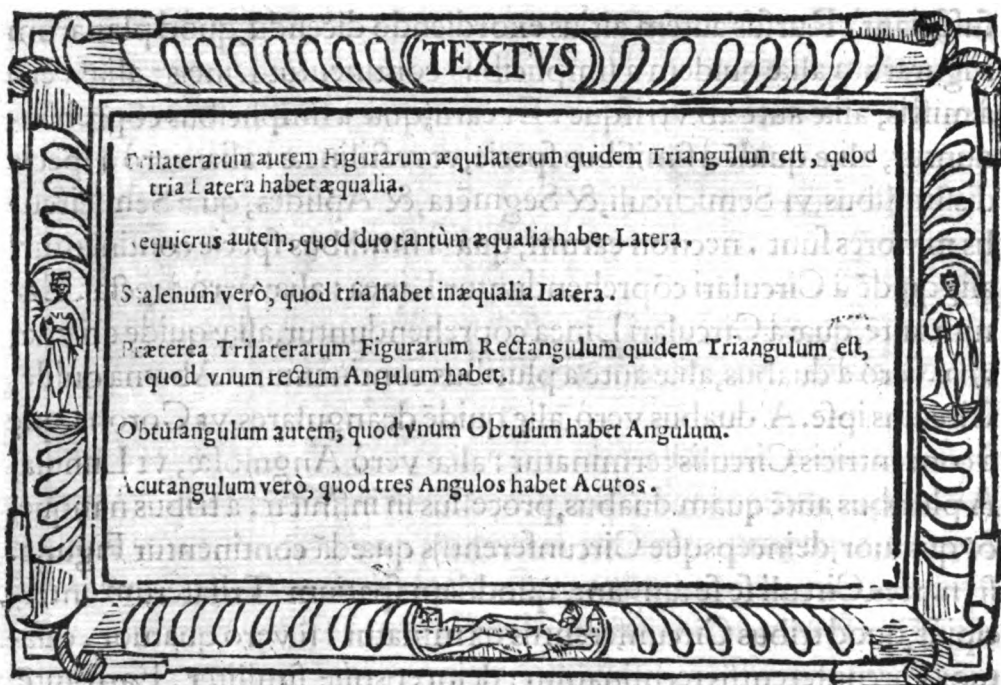 TEXTVS
Trilaterarum autem Figurarum æquilaterum quidem Triangulum est, quod
tria Latera habet æqualia.
Aequicrus autem, quod duo tantùm æqualia habet Latera.
Scalenum verò, quod tria habet inæqualia Latera.
Præterea Trilaterarum Figurarum Rectangulum quidem Triangulum est,
quod vnum rectum Angulum habet.
Obtusangulum autem, quod vnum Obtusum habet Angulum.
Acutangulum verò, quod tres Angulos habet Acutos.